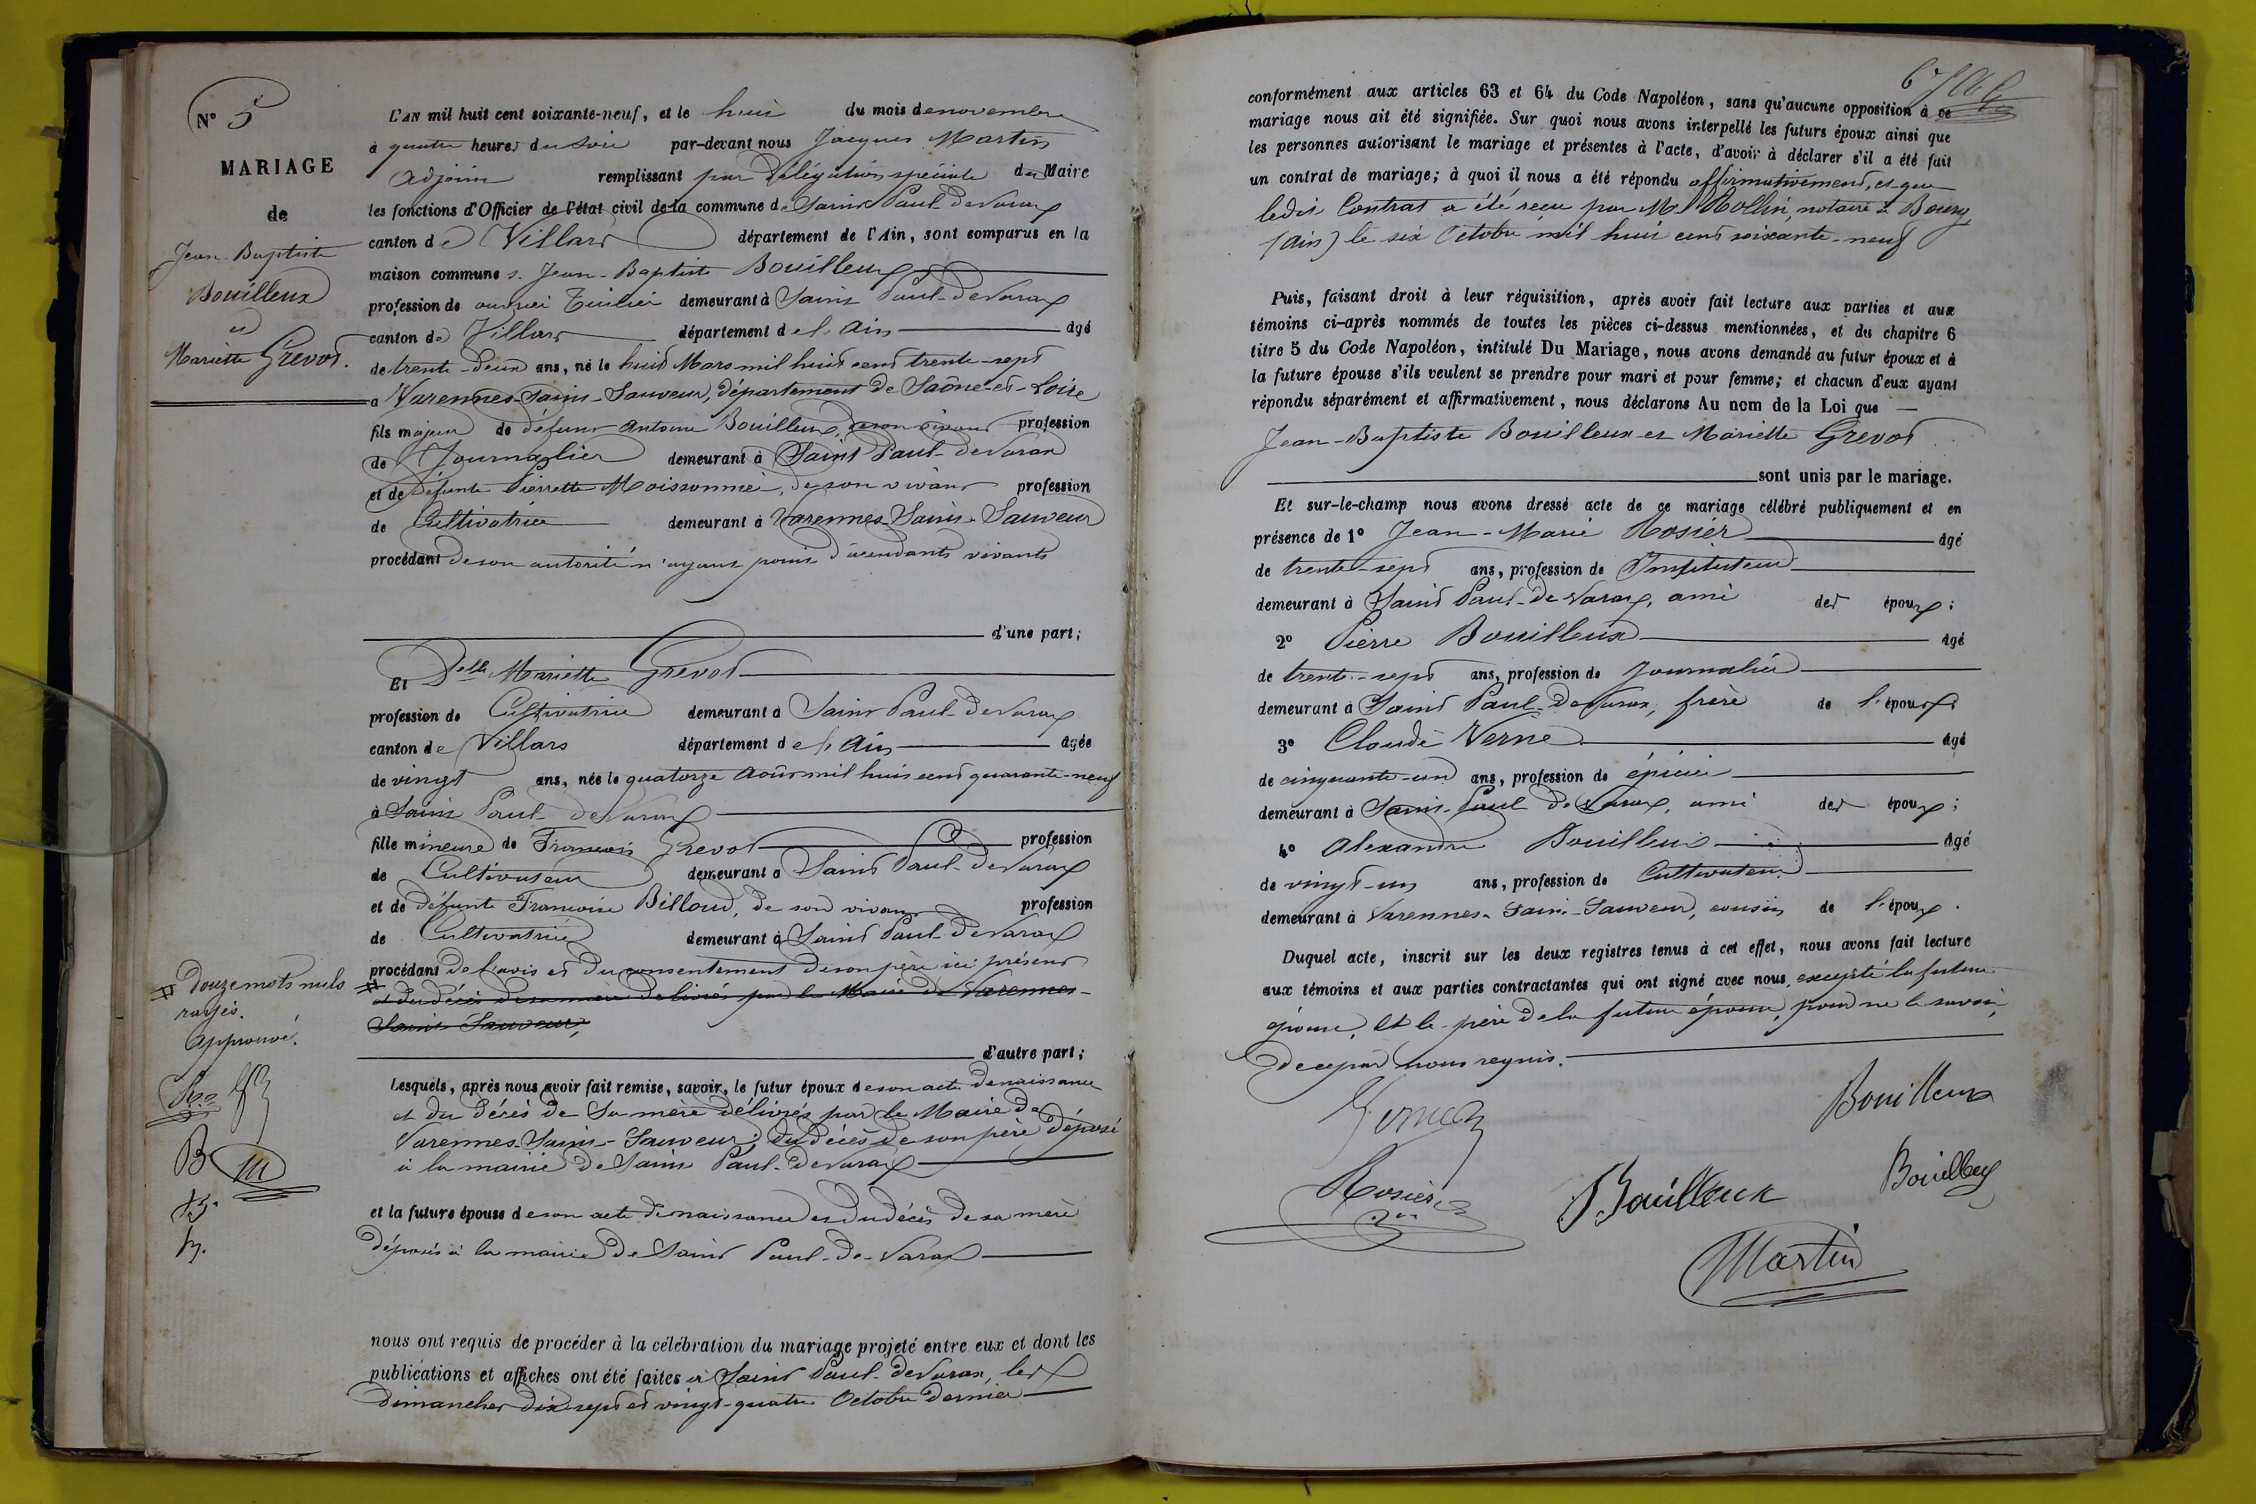 N° 5
MARIAGE
de
Jean-Baptiste
Bouilleux
et
Mariette Grevot.
L'AN mil huit cent soixante-neuf, et le huit du mois de novembre
à quatre heures du soir par-devant nous Jacques Martin
Adjoint remplissant par délégation spéciale du Maire
les fonctions d'Officier de l'état civil de la commune de Saint Paul-de Varax
canton de Villars département de l'Ain, sont comparus en la
maison commune s. Jean-Baptiste Bouilleux
profession de ouvrier Tuilier demeurant à Saint Paul-de Varax
canton de Villars département de l'Ain âgé
de trente-deux ans, né le huit Mars mil huit cent trente-sept
à Varennes-Saint-Sauveur, département de Saône-et-Loire
fils majeur de défunt Antoine Bouilleux, de son vivant profession
de Journalier demeurant à Saint Paul-de Varax
et de défunte Pierrette Moissonnier, de son vivant profession
de Cultivatrice demeurant à Varennes-Saint-Sauveur
procédant de son autorité n'ayant point d'ascendants vivants
d'une part;
Et Delle Mariette Grevot
profession de Cultivatrice demeurant à Saint Paul-de Varax
canton de Villars département de l'Ain âgée
de vingt ans, née le quatorze Août mil huit cent quarante-neuf
à Saint Paul-de Varax
fille mineure de François Grevot profession
de Cultivateur demeurant à Saint Paul-de Varax
et de défunte Françoise Billoud, de son vivant profession
de Cultivatrice demeurant à Saint Paul-de Varax
procédant de l'avis et du consentement de son père ici présent
# et du décès de sa mère délivrés par le Maire de Varennes-
Saint-Sauveur,
# Douze mots nuls
rayés.
Approuvé.
d'autre part;
Lesquels, après nous avoir fait remise, savoir, le futur époux de son acte de naissance
et du décès de sa mère délivrés par le Maire de
Varennes-Saint-Sauveur; du décès de son père déposé
à la mairie de Saint Paul-de Varax
B M
et la future épouse de son acte de naissance et du décès de sa mère
déposés à la mairie de Saint Paul-de-Varax
nous ont requis de procéder à la célébration du mariage projeté entre eux et dont les
publications et affiches ont été faites à Saint Paul-de Varax, les
dimanches dix-sept et vingt-quatre Octobre dernier
conformément aux articles 63 et 64 du Code Napoléon, sans qu'aucune opposition à ce
mariage nous ait été signifiée. Sur quoi nous avons interpellé les futurs époux ainsi que
les personnes autorisant le mariage et présentes à l'acte, d'avoir à déclarer s'il a été fait
un contrat de mariage; à quoi il nous a été répondu affirmativement, et que
ledit Contrat a été reçu par Me Rollin, notaire à Bourg,
(Ain) le six Octobre mil huit cent soixante-neuf
Puis, faisant droit à leur réquisition, après avoir fait lecture aux parties et aux
témoins ci-après nommés de toutes les pièces ci-dessus mentionnées, et du chapitre 6
titre 5 du Code Napoléon, intitulé Du Mariage, nous avons demandé au futur époux et à
la future épouse s'ils veulent se prendre pour mari et pour femme; et chacun d'eux ayant
répondu séparément et affirmativement, nous déclarons Au nom de la Loi que
Jean-Baptiste Bouilleux et Mariette Grevot
sont unis par le mariage.
Et sur-le-champ nous avons dressé acte de ce mariage célébré publiquement et en
présence de 1° Jean-Marie Rosier âgé
de trente-sept ans, profession de Instituteur
demeurant à Saint Paul-de Varax, ami des époux;
2° Pierre Bouilleux âgé
de trente-sept ans, profession de Journalier
demeurant à Saint Paul-de Varax, frère de l'époux
3° Claude Verne âgé
de cinquante-un ans, profession de épicier
demeurant à Saint-Paul de Varax, ami des époux;
4° Alexandre Bouilleux âgé
de vingt-un ans, profession de Cultivateur
demeurant à Varennes-Saint-Sauveur, cousin de l'époux.
Duquel acte, inscrit sur les deux registres tenus à cet effet, nous avons fait lecture
aux témoins et aux parties contractantes qui ont signé avec nous, excepté la future
épouse, et le père de la future épouse, pour ne le savoir,
de ce par nous requis.
Verne
Bouilleux
Rosier
Bouilleux
Bouilleux
Martin